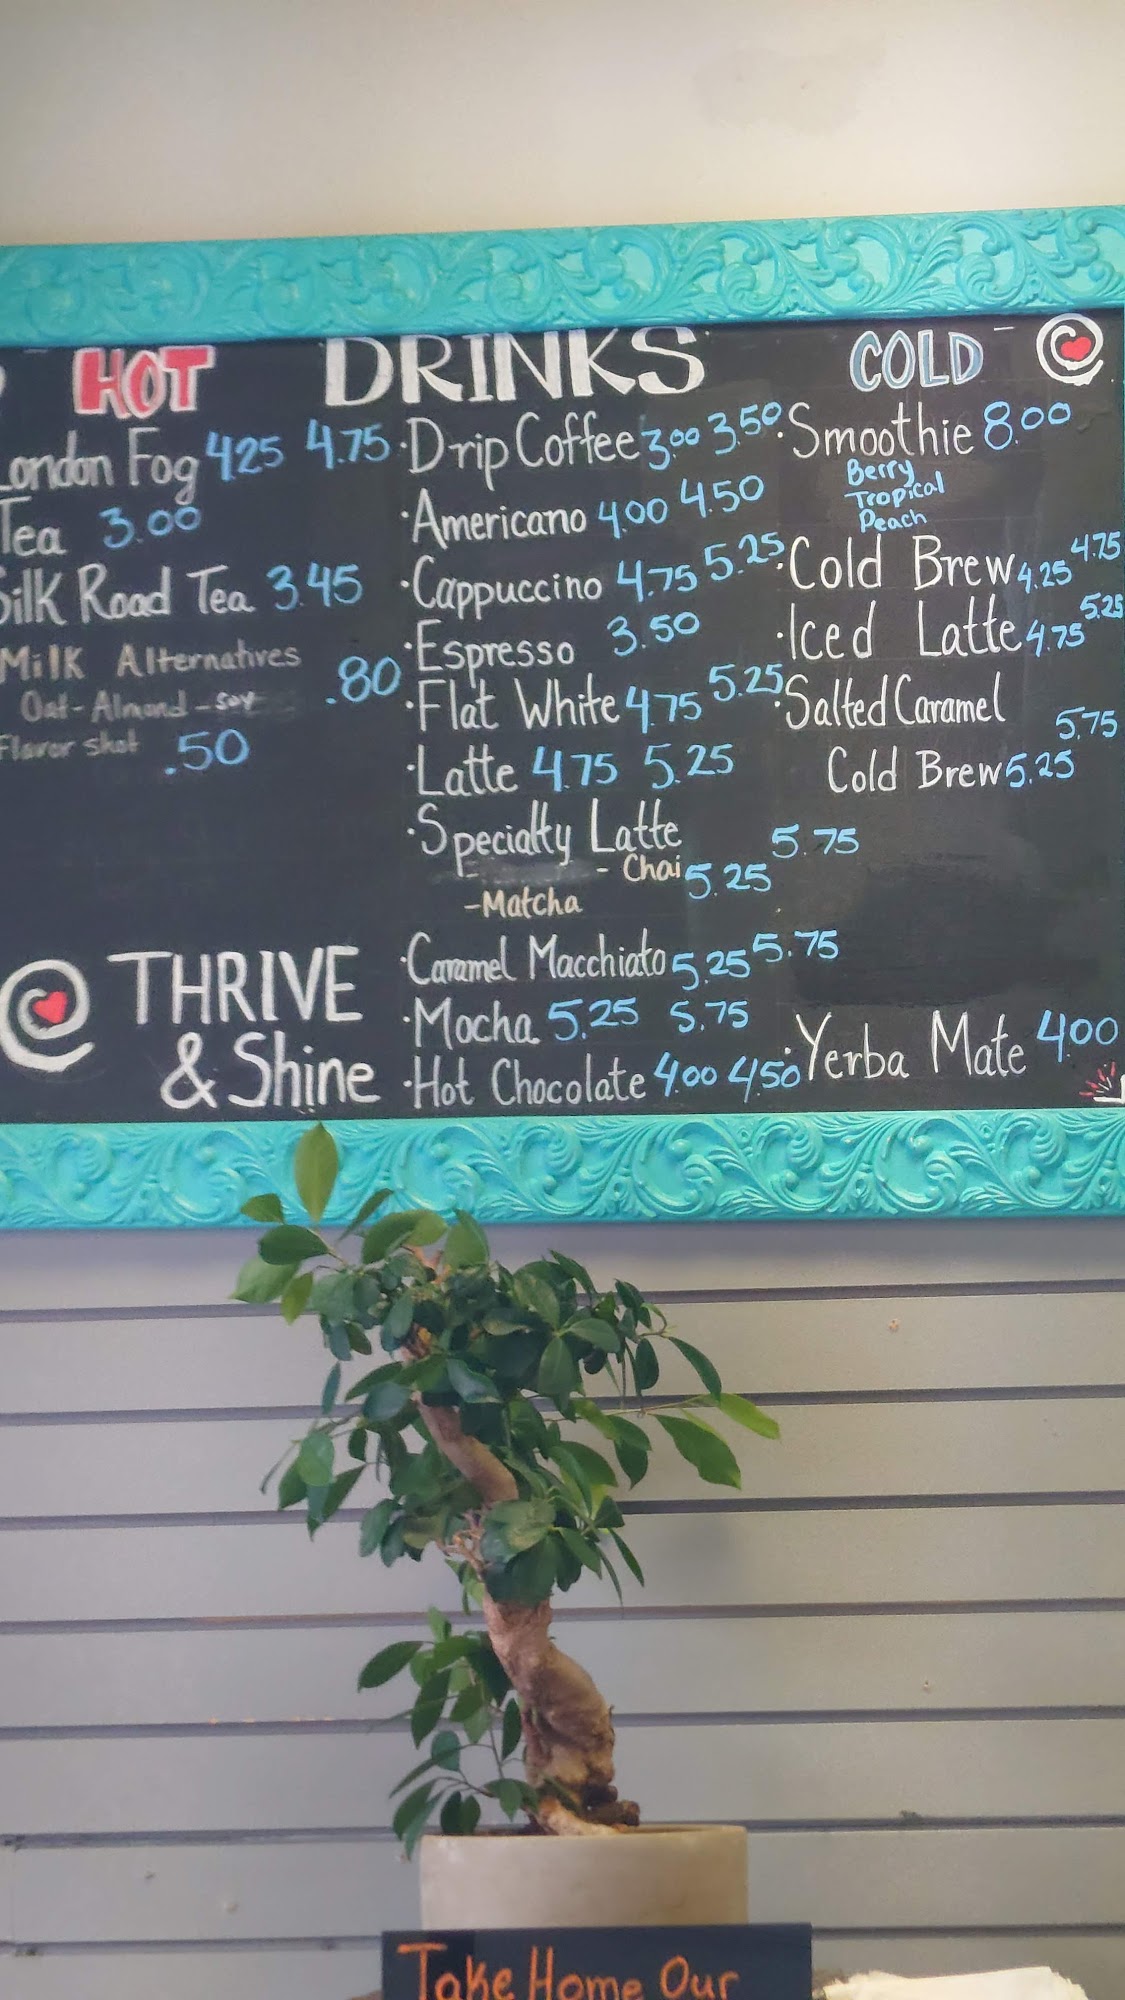 HOT DRINKS COLD
London Fog 4.25 4.75
Tea 3.00
Silk Road Tea 3.45
Milk Alternatives .80
Oat - Almond - soy
Flavor shot .50
THRIVE
& Shine
· Drip Coffee 3.00 3.50
· Americano 4.00 4.50
· Cappuccino 4.75 5.25
· Espresso 3.50
· Flat White 4.75 5.25
· Latte 4.75 5.25
· Specialty Latte 5.75
- Chai 5.25
- Matcha
· Caramel Macchiato 5.25 5.75
· Mocha 5.25 5.75
· Hot Chocolate 4.00 4.50
· Smoothie 8.00
Berry
Tropical
Peach
· Cold Brew 4.25 4.75
· Iced Latte 4.75 5.25
· Salted Caramel 5.75
Cold Brew 5.25
· Yerba Mate 4.00
Take Home Our